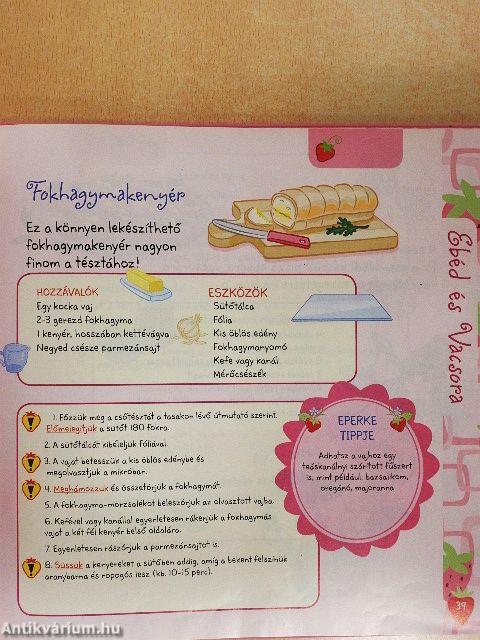 Fokhagymakenyér
Ez a könnyen lekészíthető
fokhagymakenyér nagyon
finom a tésztához!
HOZZÁVALÓK
Egy kocka vaj
2-3 gerezd fokhagyma
1 kenyér, hosszában kettévágva
Negyed csésze parmezánsajt
ESZKÖZÖK
Sütőtálca
Fólia
Kis öblös edény
Fokhagymanyomó
Kefe vagy kanál
Mérőcsészék
1. Főzzük meg a csőtésztát a tasakon lévő útmutató szerint.
Előmelegítjük a sütőt 180 fokra.
2. A sütőtálcát kibéleljük fóliával.
3. A vajat betesszük a kis öblös edénybe és
megolvasztjuk a mikróban.
4. Meghámozzuk és összetörjük a fokhagymát.
5. A fokhagyma-morzsalékot beleszórjuk az olvasztott vajba.
6. Kefével vagy kanállal egyenletesen rákenjük a fokhagymás
vajat a két fél kenyér belső oldalára.
7. Egyenletesen rászórjuk a parmezánsajtot is.
8. Süssük a kenyereket a sütőben addig, amíg a bekent felszínük
aranybarna és ropogós lesz (kb. 10-15 perc).
EPERKE
TIPPJE
Adhatsz a vajhoz egy
teáskanálnyi szárított fűszert
is, mint például: bazsalikom,
oregánó, majoranna
Ebéd és Vacsora
39
Antikvárium.hu